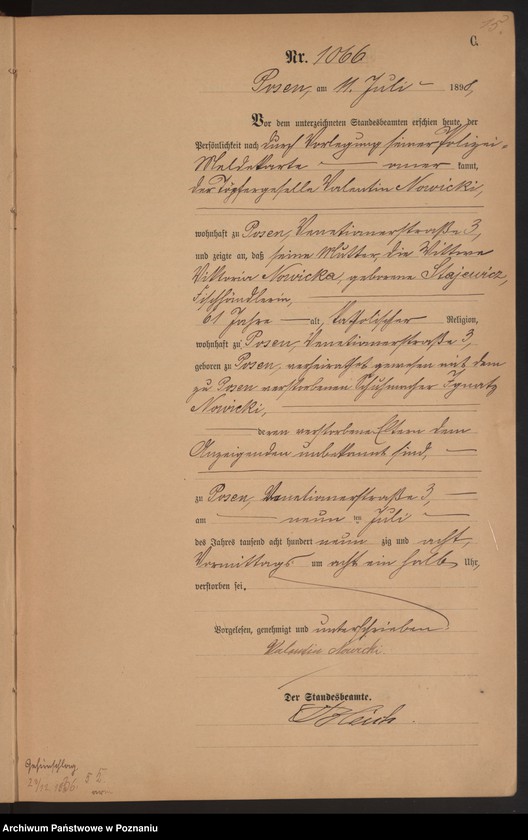 C.
Nr. 1066
Posen, am 11. Juli 1898,
Vor dem unterzeichneten Standesbeamten erschien heute, der
Persönlichkeit nach durch Vorlegung seiner Polizei-
Meldekarte aner kannt,
der Töpfergeselle Valentin Nowicki,
wohnhaft zu Posen, Venetianerstraße 3,
und zeigte an, daß seine Mutter, die Wittwe
Viktoria Nowicka, geborene Stajewicz,
Fischhändlerin,
61 Jahre alt, katholischer Religion,
wohnhaft zu Posen, Venetianerstraße 3,
geboren zu Posen, verheirathet gewesen mit dem
zu Posen verstorbenen Schuhmacher Ignatz
Nowicki,
deren verstorbene Eltern dem
Anzeigenden unbekannt sind,
zu Posen, Venetianerstraße 3,
am neun ten Juli
des Jahres tausend acht hundert neun zig und acht,
Vormittags um acht ein halb Uhr,
verstorben sei.
Vorgelesen, genehmigt und unterschrieben
Valentin Nowicki
Der Standesbeamte.
Archiwum Państwowe w Poznaniu